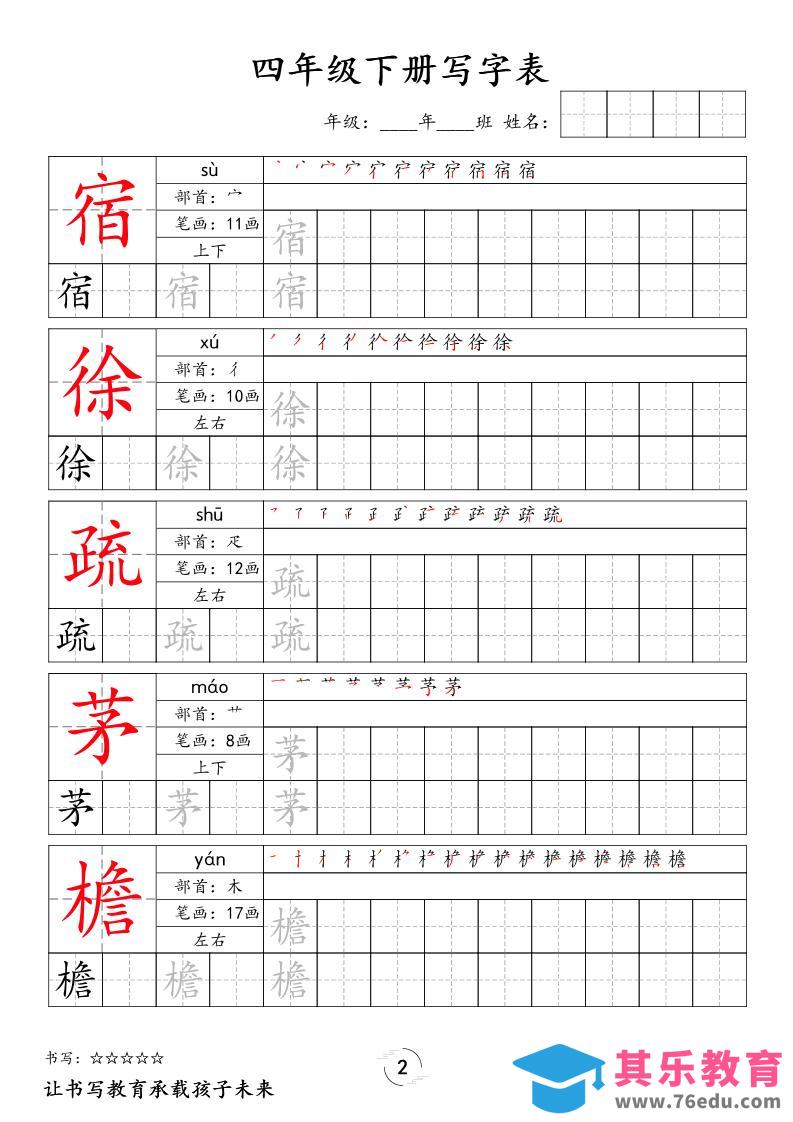 四年级下册写字表
年级：____年____班 姓名：
宿
sù
部首：宀
笔画：11画
上下
宿
宿 宿 宿
徐
xú
部首：彳
笔画：10画
左右
徐
徐 徐 徐
疏
shū
部首：疋
笔画：12画
左右
疏
疏 疏 疏
茅
máo
部首：艹
笔画：8画
上下
茅
茅 茅 茅
檐
yán
部首：木
笔画：17画
左右
檐
檐 檐 檐
书写：☆☆☆☆☆
让书写教育承载孩子未来
2
其乐教育
www.76edu.com